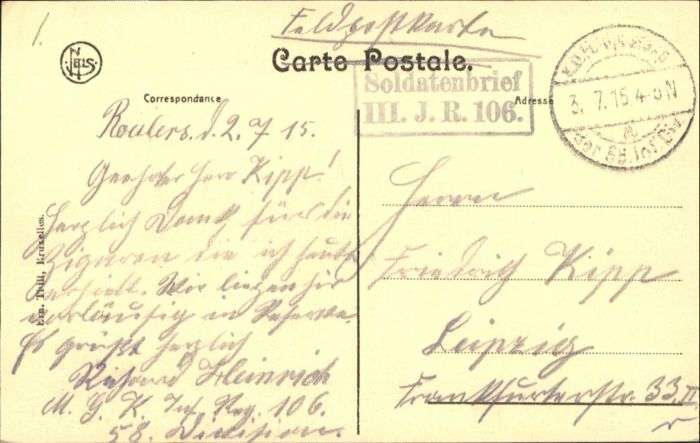 1.
Feldpostkarte
Carte Postale.
NELS
Soldatenbrief
III. J. R. 106.
Correspondance
Adresse
3. 7. 15 4-5 N
der 58. Inf. Div.
Roulers. d. 2. 7. 15.
Geehrter Herr Kipp!
Herzlich Dank für die
Zigaren die ich heute
erhielt. Wir liegen hir
vorläufig in Reserve.
Es grüßt herzlich
Richard Heinrich
M. G. K. Inf. Reg. 106.
58. Division.
Herrn
Friedrich Kipp
Leipzig
Frankfurterstr. 33. II
r
Ern. Thill, Bruxelles.